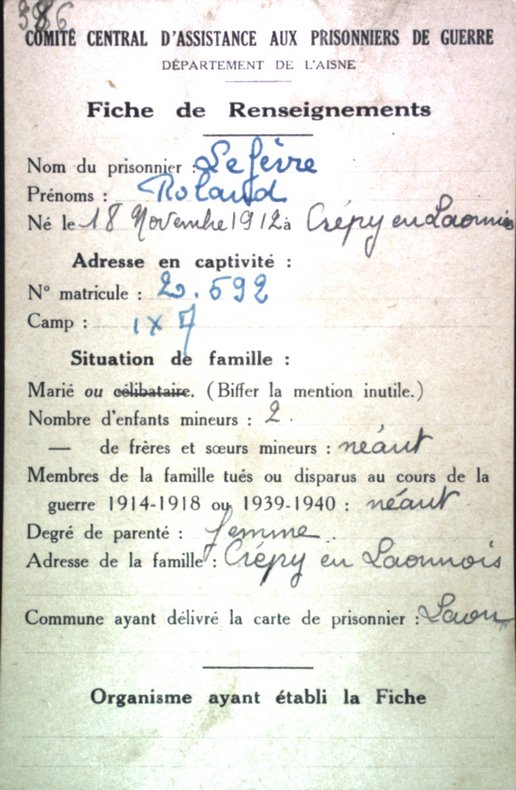 386
COMITÉ CENTRAL D'ASSISTANCE AUX PRISONNIERS DE GUERRE
DÉPARTEMENT DE L'AISNE
Fiche de Renseignements
Nom du prisonnier : Lefèvre
Prénoms : Roland
Né le 18 Novembre 1912 à Crépy en Laonnois
Adresse en captivité :
N° matricule : 20.592
Camp :
Situation de famille :
Marié ou célibataire. (Biffer la mention inutile.)
Nombre d'enfants mineurs : 2.
— de frères et sœurs mineurs : néant
Membres de la famille tués ou disparus au cours de la
guerre 1914-1918 ou 1939-1940 : néant
Degré de parenté : femme
Adresse de la famille : Crépy en Laonnois
Commune ayant délivré la carte de prisonnier : Laon
Organisme ayant établi la Fiche